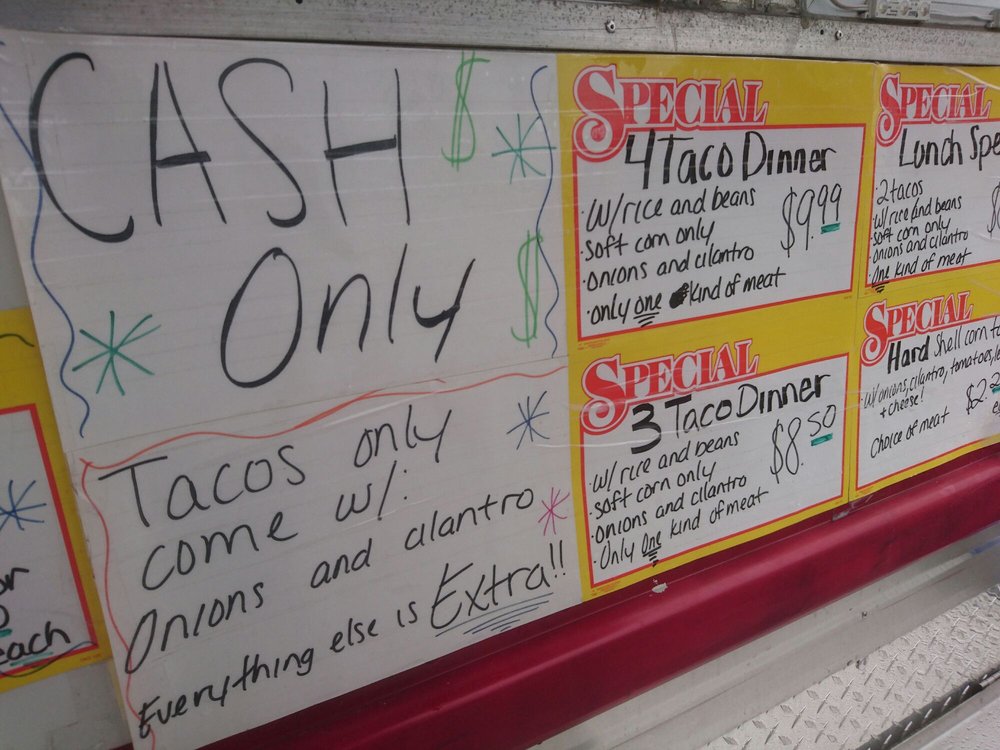 CASH $
Only $
Tacos only
come w/:
Onions and cilantro
Everything else is Extra!!
SPECIAL
4 Taco Dinner
· w/rice and beans
· soft corn only
· onions and cilantro
· only one kind of meat
$9.99
SPECIAL
3 Taco Dinner
· w/rice and beans
· soft corn only
· onions and cilantro
· Only one kind of meat
$8.50
SPECIAL
Lunch Spe
· 2 tacos
· w/rice and beans
· soft corn only
· onions and cilantro
· One kind of meat
$
SPECIAL
Hard Shell corn ta
· w/onions, cilantro, tomatoes,
+ cheese!
Choice of meat
$2.
each